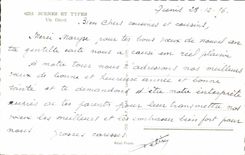 6254 SCENES ET TYPES
Un Caïd
Paris 29.12.
Bien chers cousines et cousins,
Merci Maryse pour tes bons vœux de nouvel an
ta gentille carte nous a causé un réel plaisir
A notre tour nous t'adressons nos meilleurs
vœux de bonne et heureuse année et bonne
santé et te demandons d'être notre interprète
auprès de tes parents pour leur transmettre nos
vœux les meilleurs et les embrasser bien fort pour
nous
grosses caresses